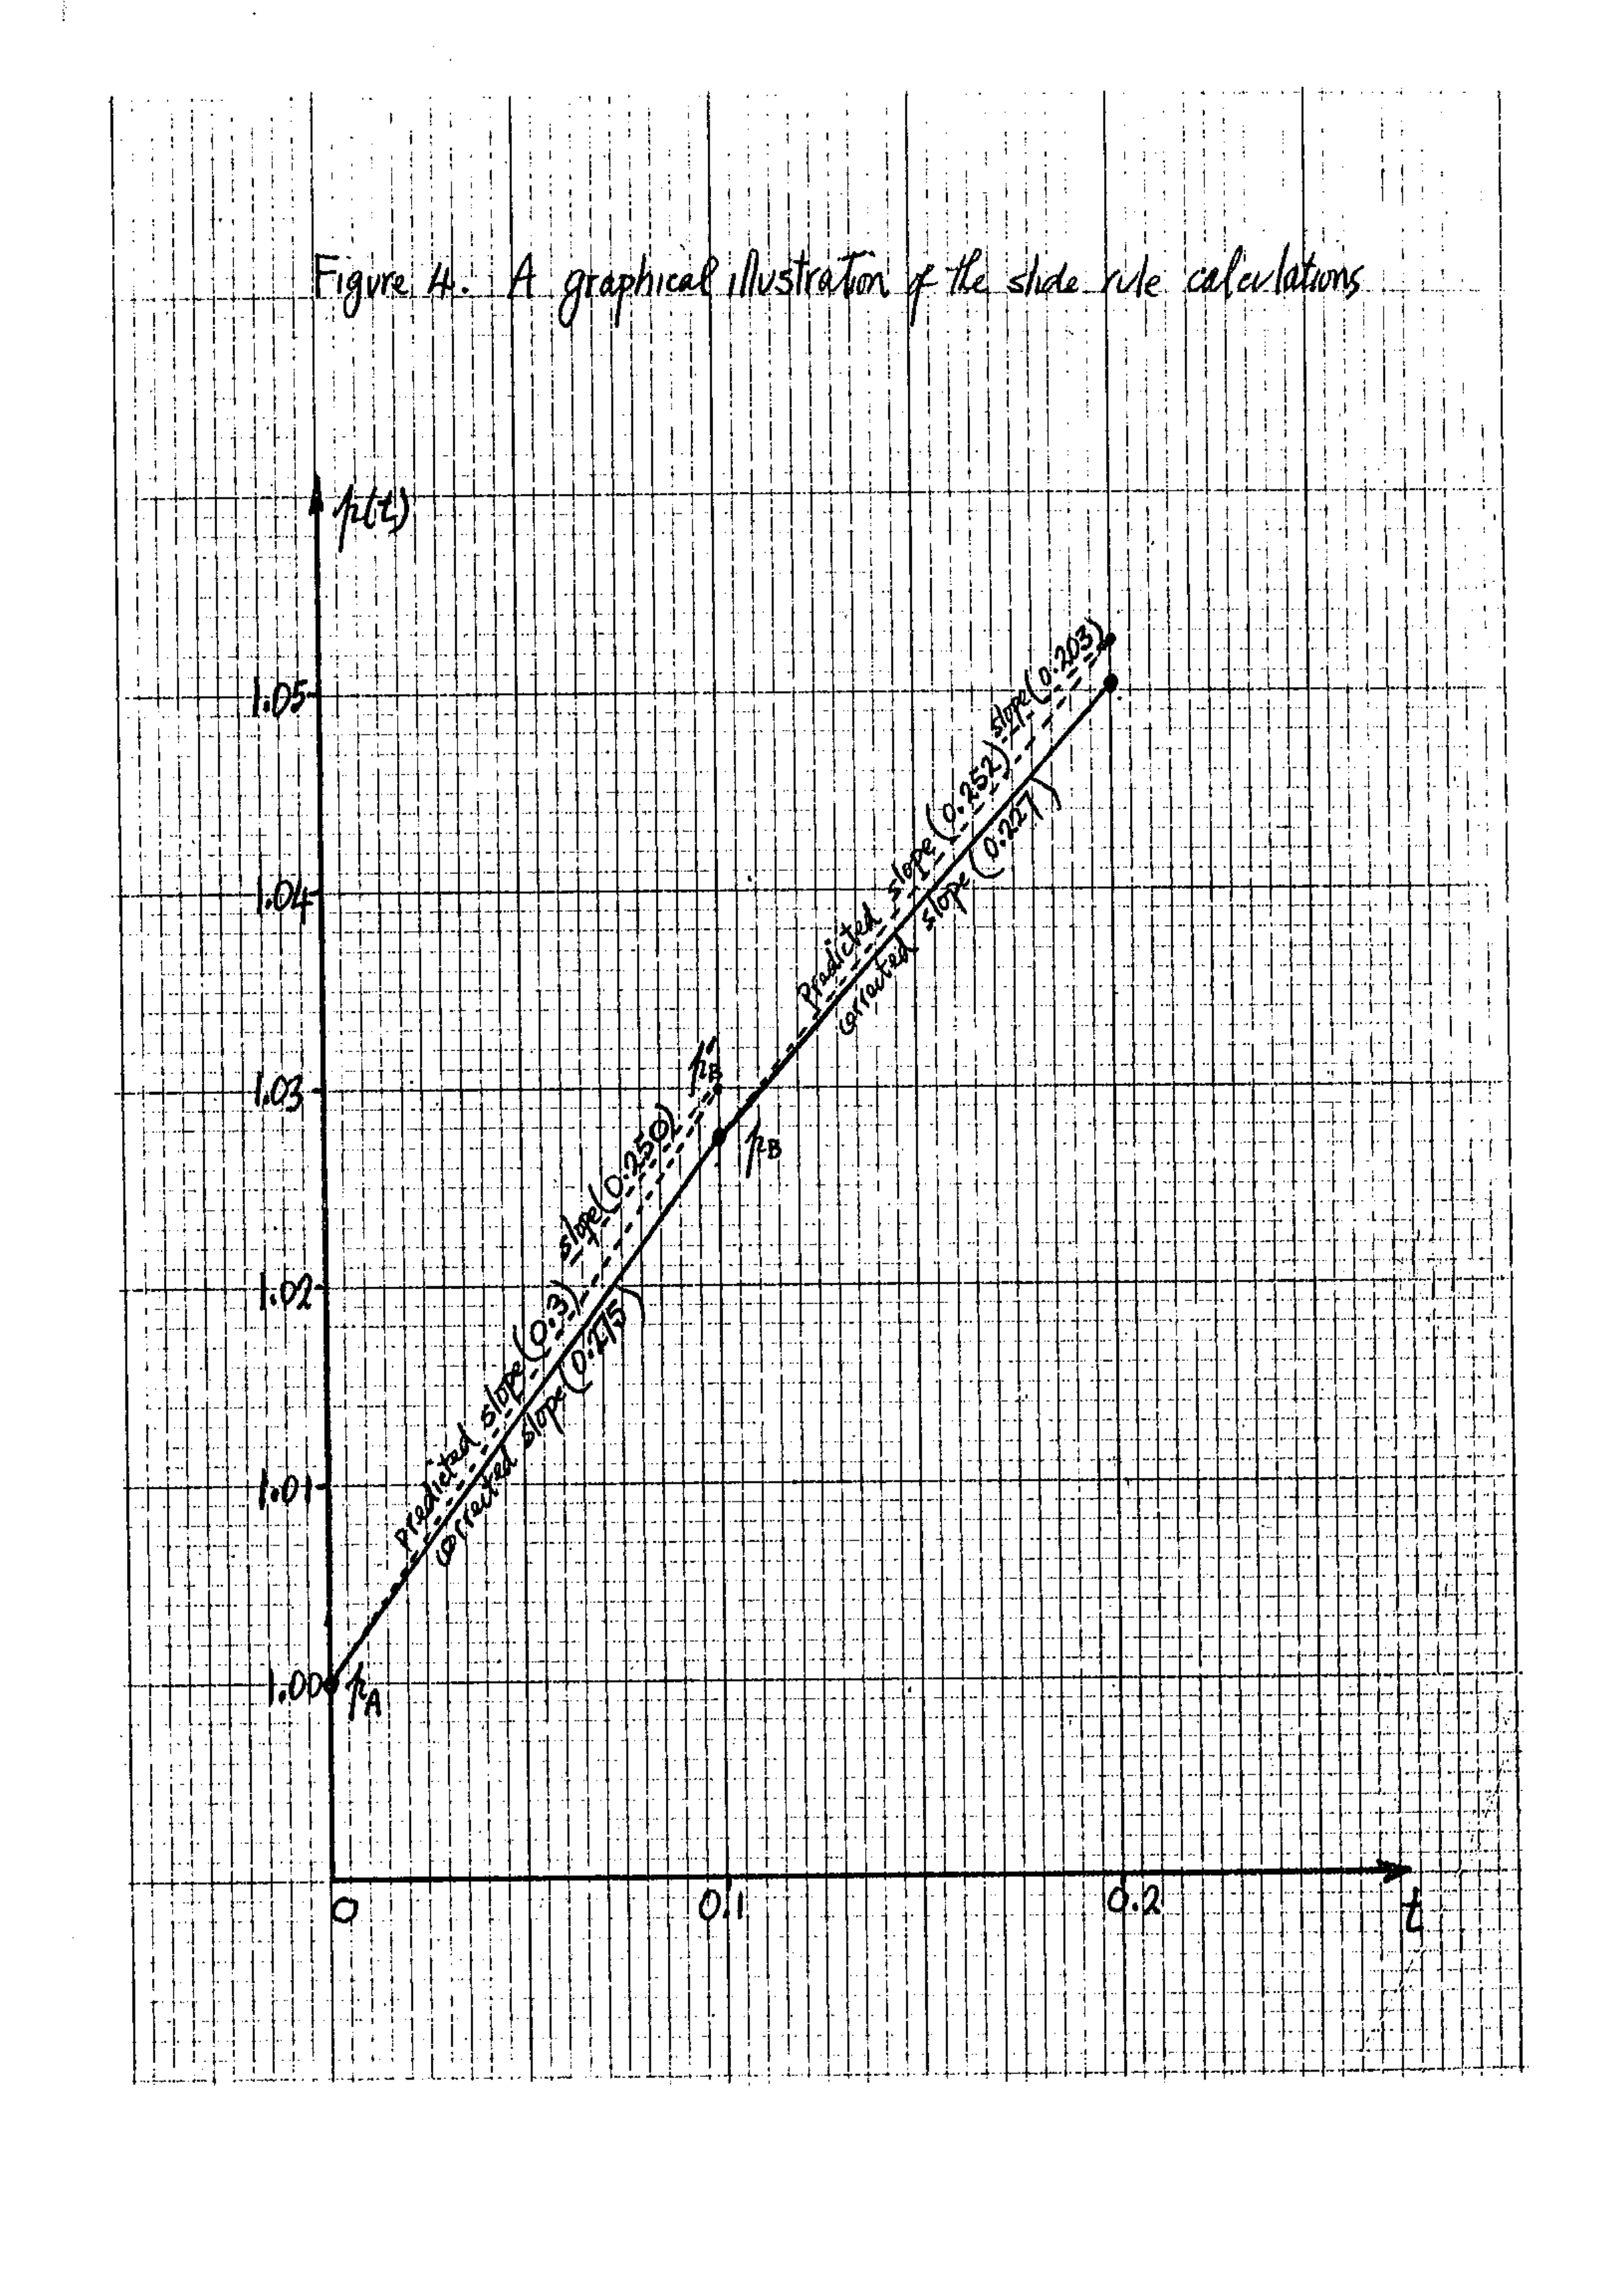 Figure 4. A graphical illustration of the slide rule calculations
p(t)
1.05
1.04
1.03
1.02
1.01
1.00
Predicted slope (0.252) slope (0.203)
corrected slope (0.227)
p*B
pB
predicted slope (0.3) slope (0.250)
corrected slope (0.275)
pA
0
0.1
0.2
t